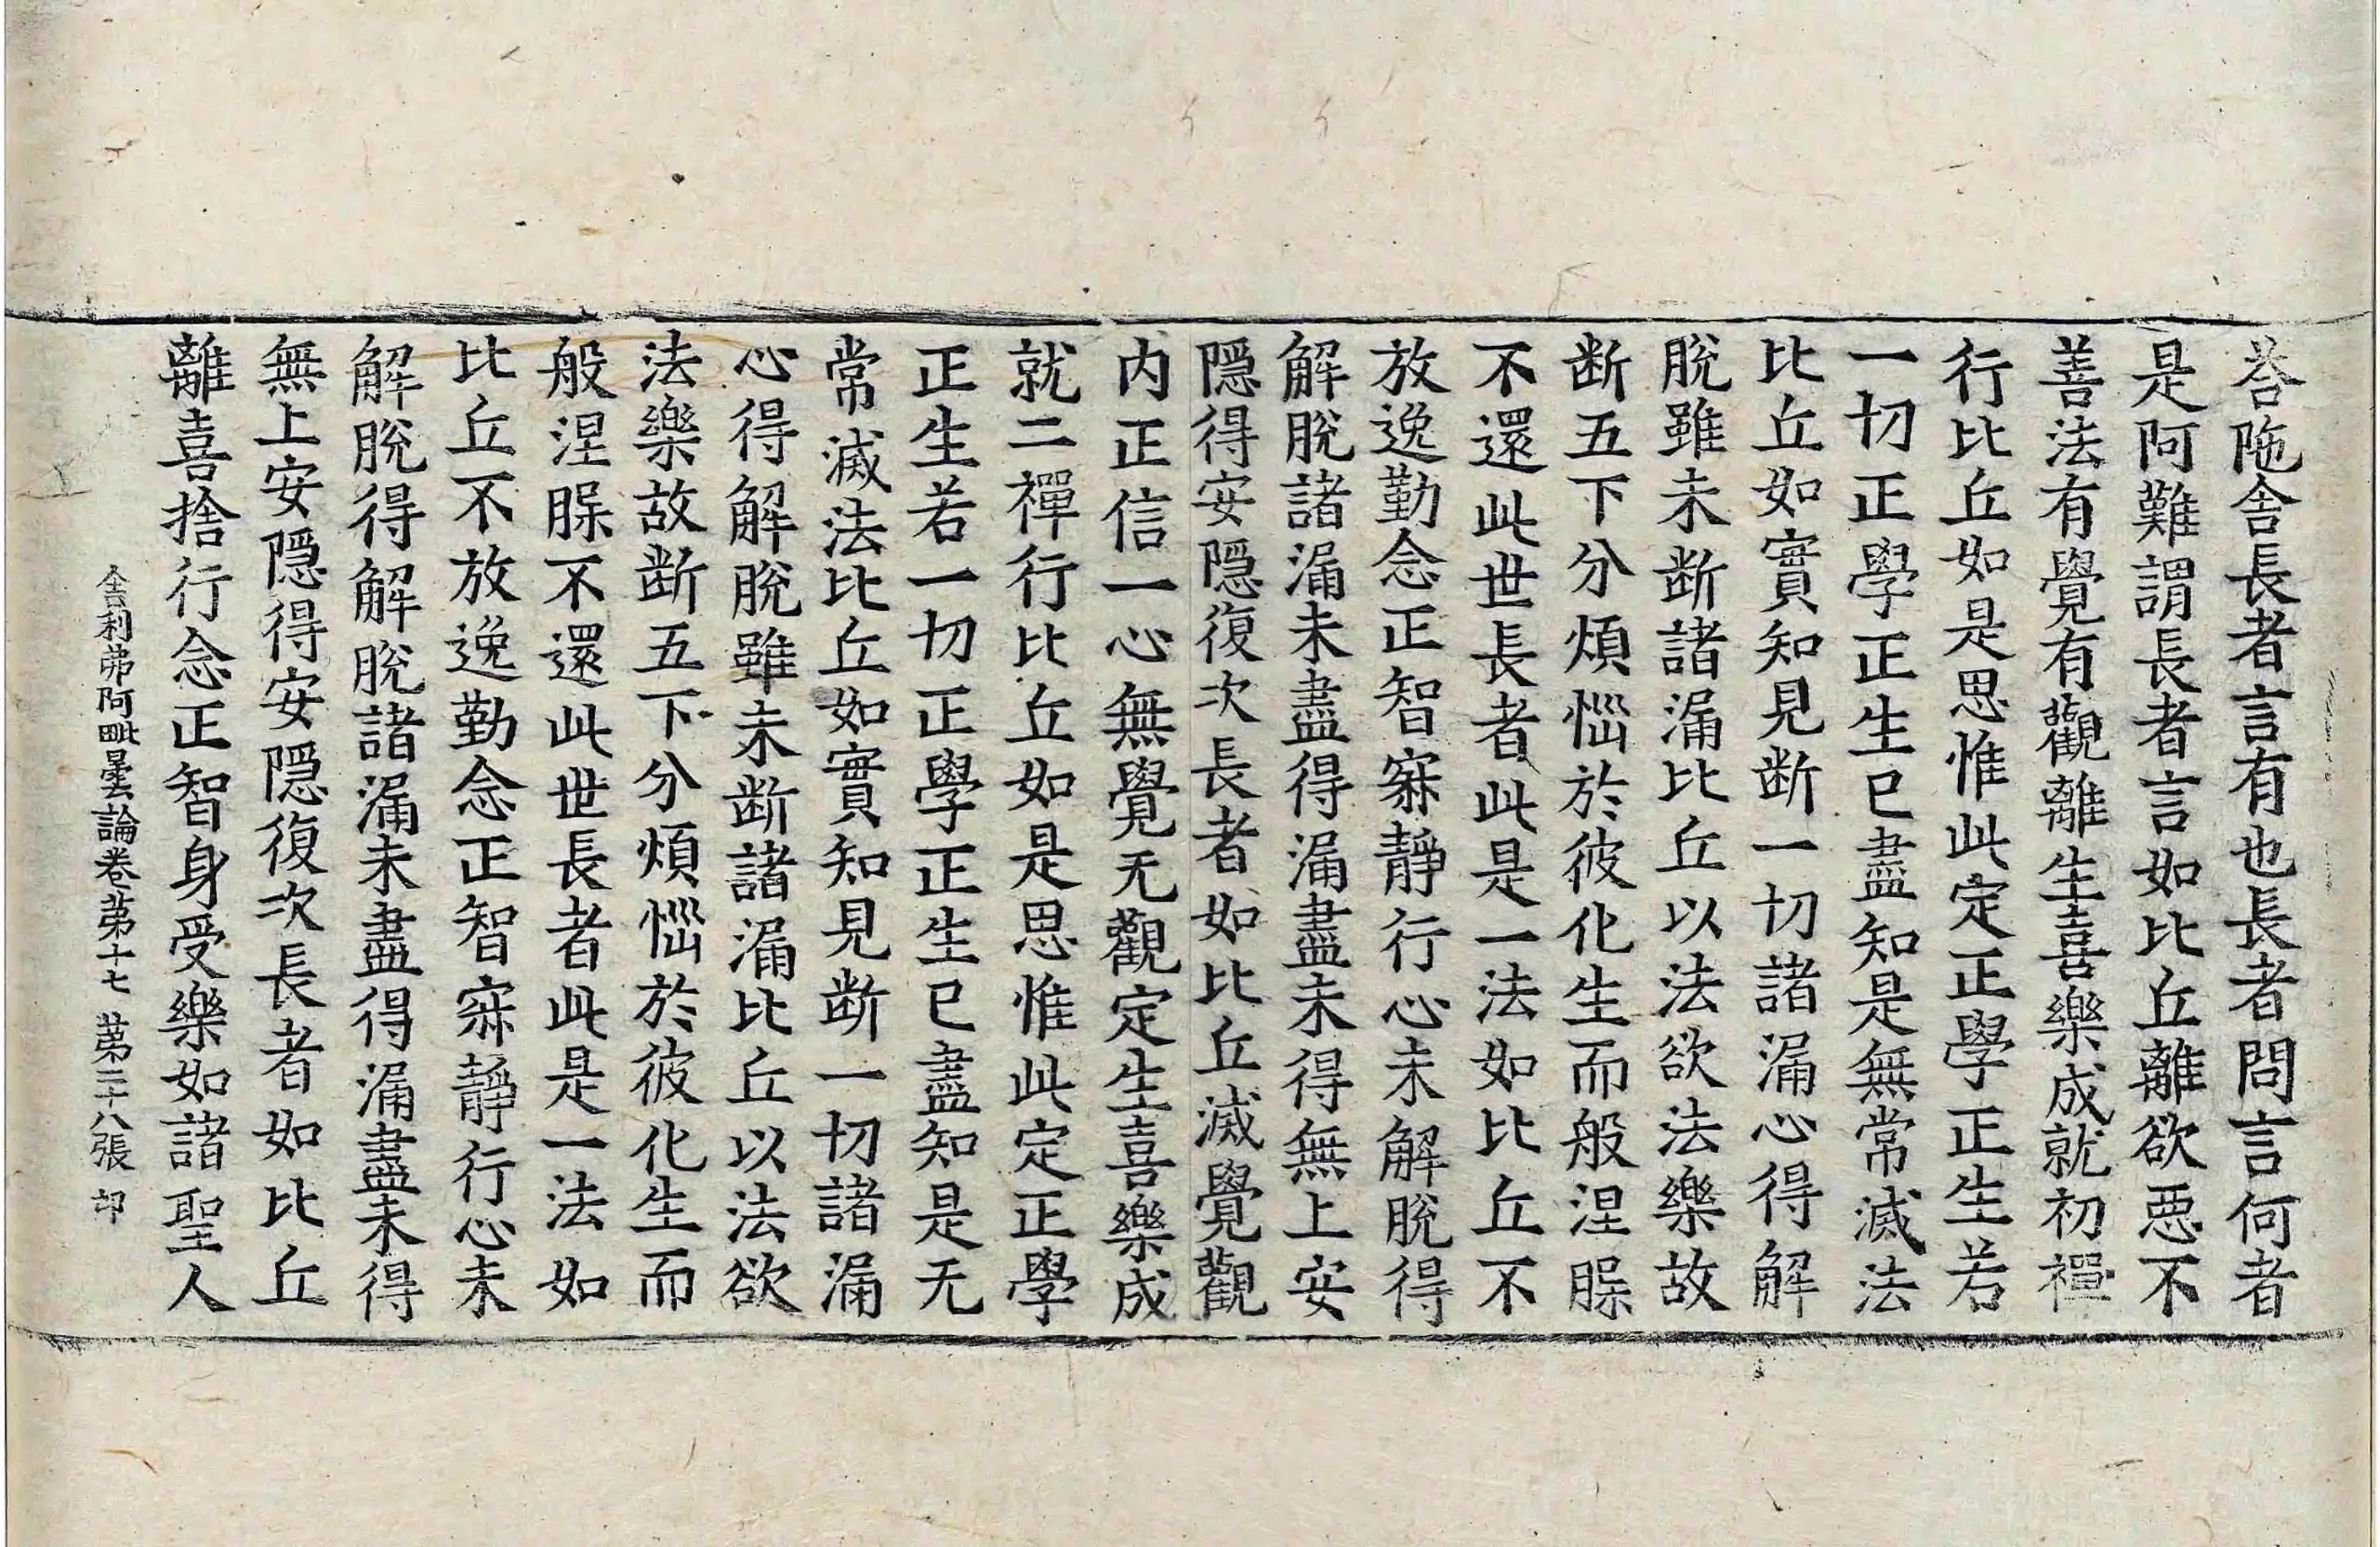 荅陁舎長者言有也長者問言何者
是阿難謂長者言如比丘離欲悪不
善法有覺有觀離生喜樂成就初禪
行比丘如是思惟此定正學正生若
一切正學正生已盡知是無常滅法
比丘如實知見断一切諸漏心得解
脫雖未断諸漏比丘以法欲法樂故
断五下分煩惱於彼化生而般涅槃
不還此世長者此是一法如比丘不
放逸勤念正智寂靜行心未解脫得
解脫諸漏未盡得漏盡未得無上安
隠得安隠復次長者如比丘滅覺觀
内正信一心無覺无觀定生喜樂成
就二禪行比丘如是思惟此定正學
正生若一切正學正生已盡知是无
常滅法比丘如實知見断一切諸漏
心得解脫雖未断諸漏比丘以法欲
法樂故断五下分煩惱於彼化生而
般涅槃不還此世長者此是一法如
比丘不放逸勤念正智寂靜行心未
解脫得解脫諸漏未盡得漏盡未得
無上安隠得安隠復次長者如比丘
離喜捨行念正智身受樂如諸聖人
舎利弗阿毗曇論卷苐十七 苐二十八張 印